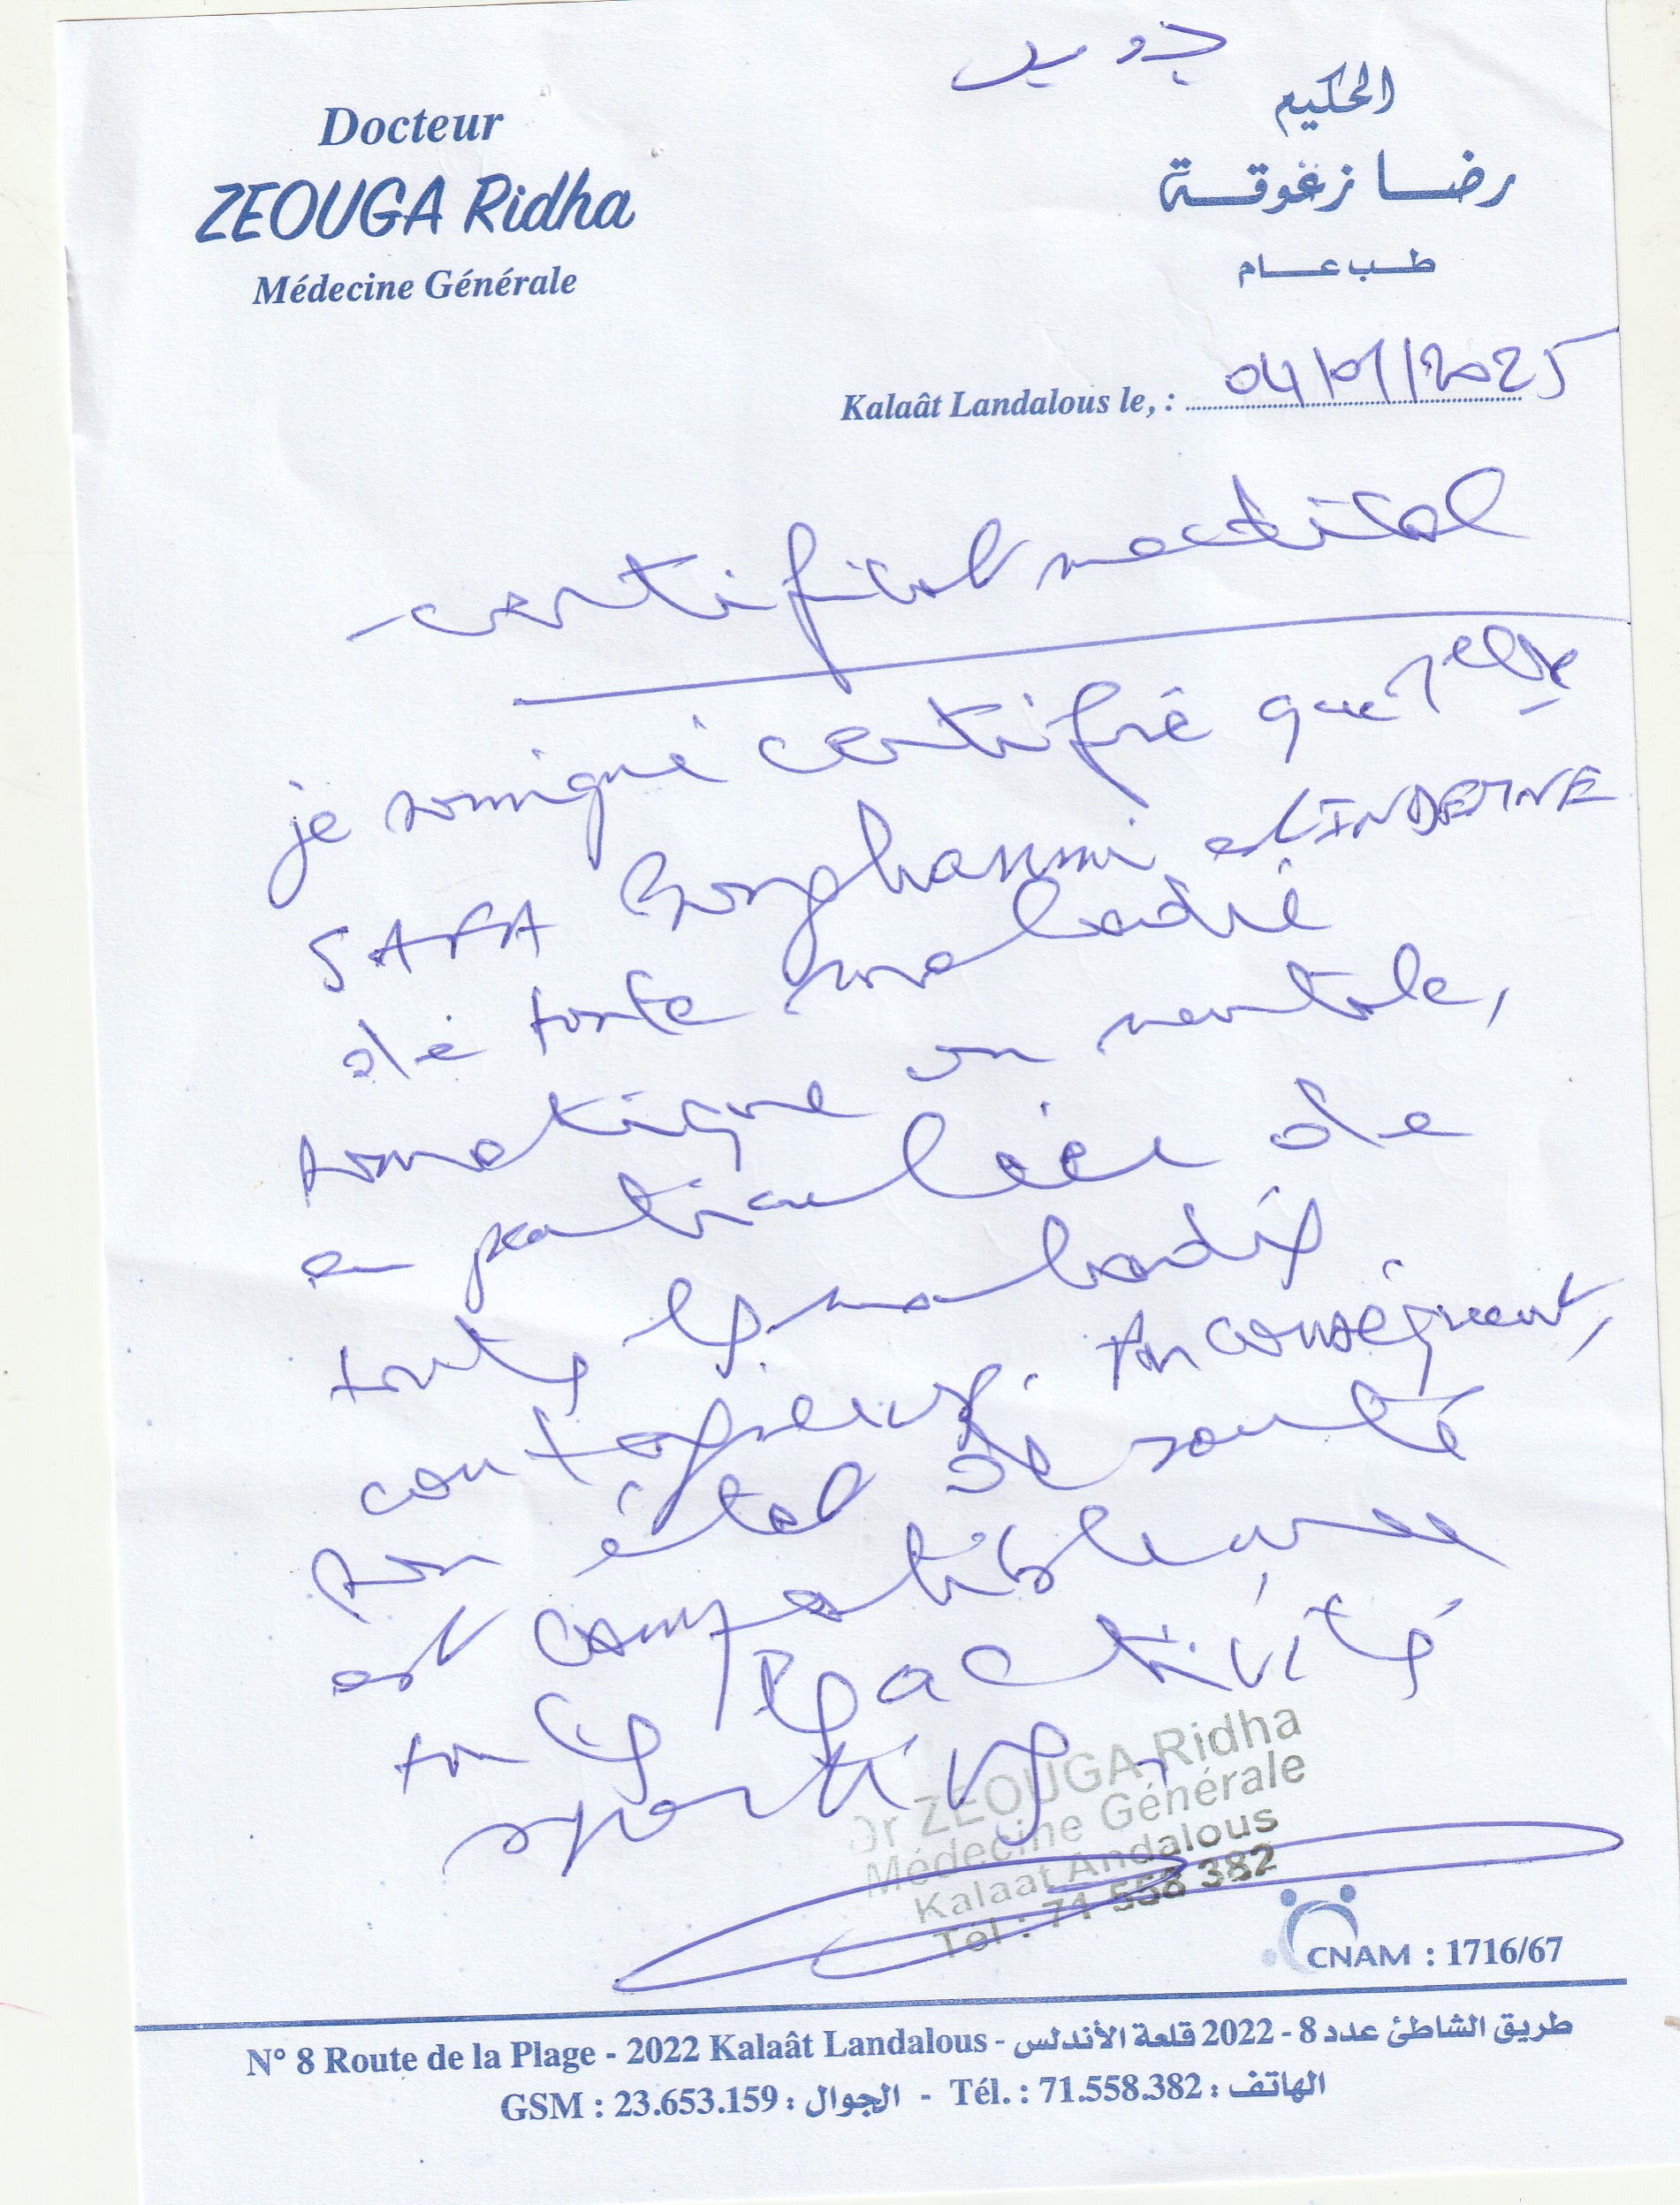 جديد
Docteur
ZEOUGA Ridha
Médecine Générale
الحكيم
رضا زغوقة
طب عام
Kalaât Landalous le, : 04/01/2025
- certificat medical
je soussigné certifié que Melle
SAFA Borghanmi est INDEMNE
de toute maladie
somatique ou mentale,
en particulier de
toutes les maladies
contagieuses. Par conséquent,
son état de santé
est compatible avec
toutes les activités
sportives.
Dr ZEOUGA Ridha
Médecine Générale
Kalaat Andalous
Tél : 71 558 382
CNAM : 1716/67
N° 8 Route de la Plage - 2022 Kalaât Landalous - طريق الشاطئ عدد 8 - 2022 قلعة الأندلس
GSM : 23.653.159 : الجوال - Tél. : 71.558.382 : الهاتف